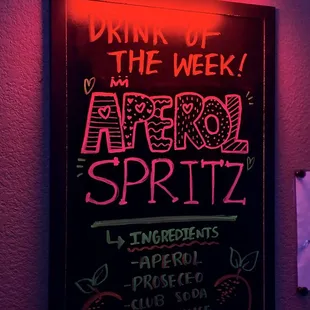 DRINK OF
THE WEEK!
APEROL
SPRITZ
INGREDIENTS
-APEROL
-PROSECCO
-CLUB SODA